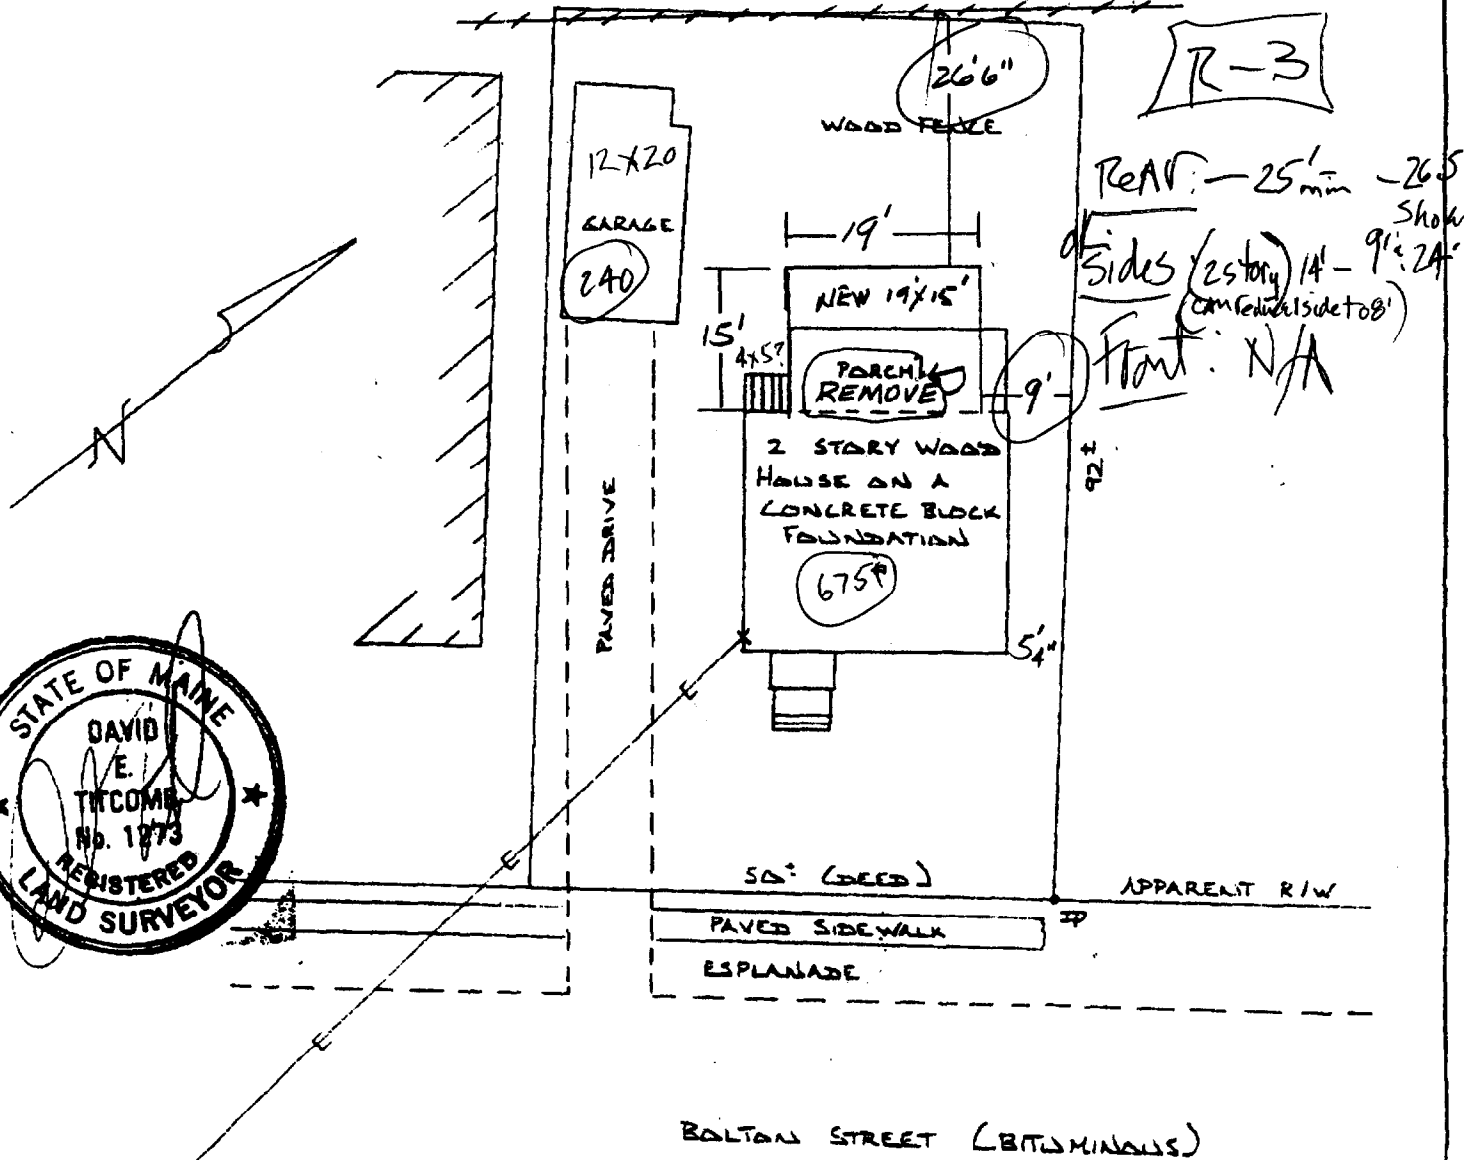 R-3
26'6"
WOOD FENCE
12x20
GARAGE
240
Rear: - 25' min - 26.5
Show
Sides (2 story) 14' - 9' & 24'
(can reduce 1 side to 8')
Front: N/A
19'
NEW 19'x15'
15'
4x5?
PORCH
REMOVE
9'
2 STORY WOOD
HOUSE ON A
CONCRETE BLOCK
FOUNDATION
675
92±
N
PAVED DRIVE
5'4"
E
E
E
STATE OF MAINE
DAVID
E.
TITCOMB
No. 1273
REGISTERED
LAND SURVEYOR
50± (DEED)
APPARENT R/W
IP
PAVED SIDEWALK
ESPLANADE
BOLTON STREET (BITUMINOUS)